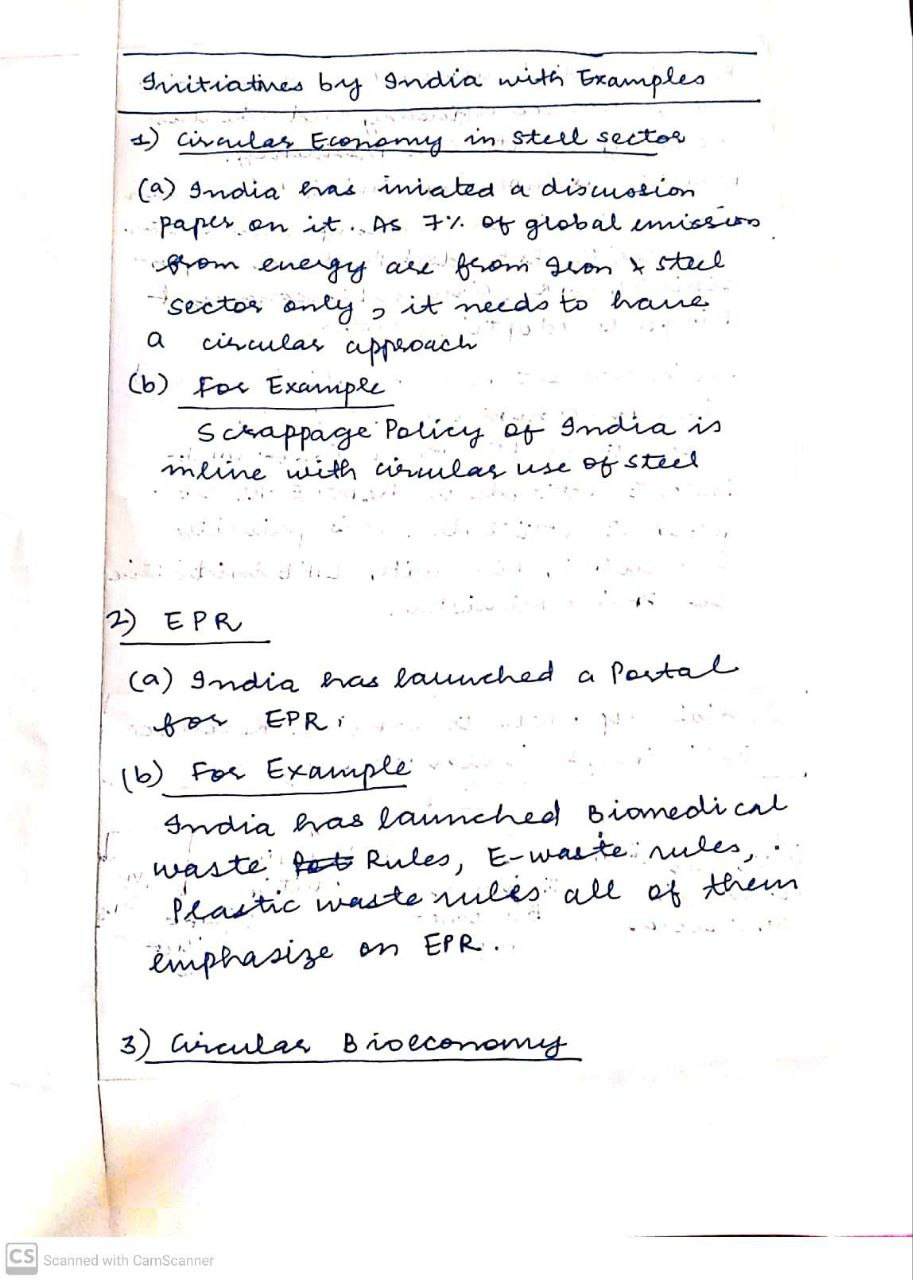 Initiatives by India with Examples
1) Circular Economy in Steel sector
(a) India has iniated a discussion
paper on it. As 7% of global emissions
from energy are from Iron & steel
sector only, it needs to have
a circular approach
(b) For Example
Scrappage Policy of India is
inline with circular use of steel
2) EPR
(a) India has launched a Portal
for EPR.
(b) For Example
India has launched Biomedical
waste Rules, E-waste rules,
Plastic waste rules all of them
emphasize on EPR.
3) Circular Bioeconomy
CS Scanned with CamScanner